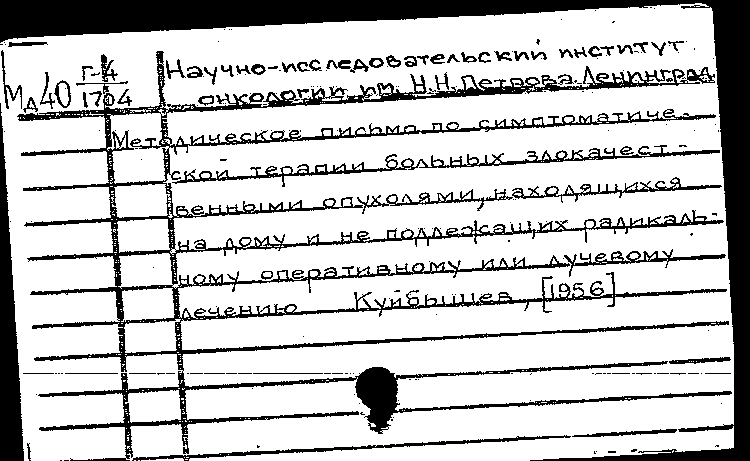 Мд40 Г-4/1704
Научно-исследовательский институт
онкологии им. Н.Н.Петрова. Ленинград
Методическое письмо по симптоматиче-
ской терапии больных злокачест-
венными опухолями, находящихся
на дому и не подлежащих радикаль-
ному оперативному или лучевому
лечению Куйбышев, [1956]